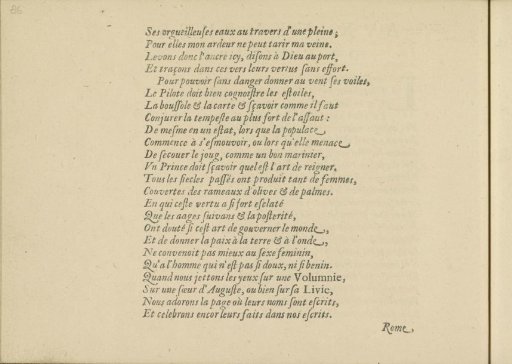 86
Ses orgueilleuses eaux au travers d'une pleine;
Pour elles mon ardeur ne peut tarir ma veine.
Levons donc l'ancre icy, disons à Dieu au port,
Et traçons dans ces vers leurs vertus sans effort.
Pour pouvoir sans danger donner au vent ses voiles,
Le Pilote doit bien cognoistre les estoiles,
La boussole & la carte & sçavoir comme il faut
Conjurer la tempeste au plus fort de l'assaut:
De mesme en un estat, lors que la populace
Commence à s'esmouvoir, ou lors qu'elle menace
De secouer le joug, comme un bon marinier,
Vn Prince doit sçavoir quel est l'art de reigner,
Tous les siecles passés ont produit tant de femmes,
Couvertes des rameaux d'olives & de palmes.
En qui ceste vertu a si fort esclaté
Que les aages suivans & la posterité,
Ont douté si cest art de gouverner le monde,
Et de donner la paix à la terre & à l'onde,
Ne convenoit pas mieux au sexe feminin,
Qu'a l'homme qui n'est pas si doux, ni si benin.
Quand nous jettons les yeux sur une Volumnie,
Sur une sœur d'Auguste, ou bien sur sa Livie,
Nous adorons la page où leurs noms sont escrits,
Et celebrons encor leurs faits dans nos escrits.
Rome,